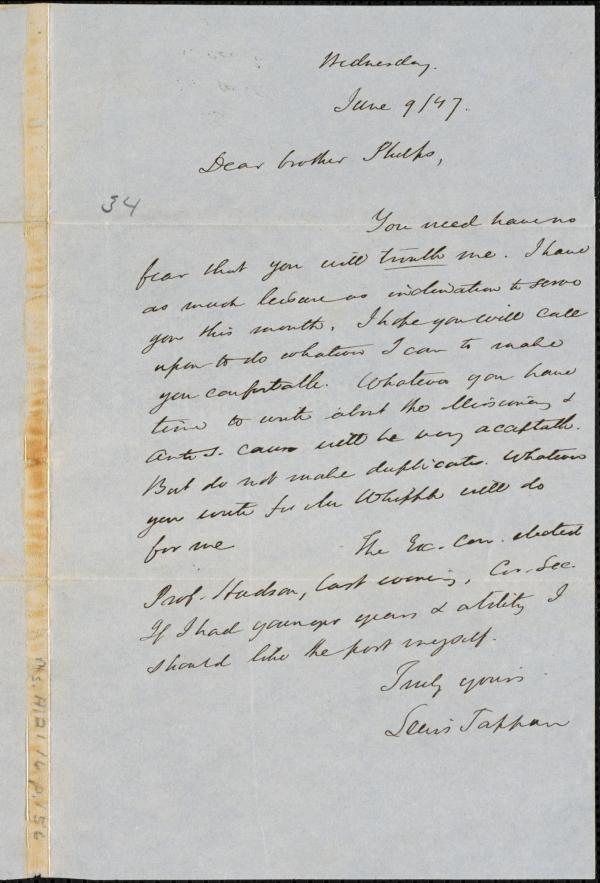 Wednesday.
June 9/47.
Dear brother Phelps,
34
You need have no
fear that you will trouble me. I have
as much leisure as inclination to serve
you this month. I hope you will call
upon to do whatever I can to make
you comfortable. Whatever you have
time to write about the Missionary &
Anti S. cause will be very acceptable.
But do not make duplicates. Whatever
you write for Mr Whipple will do
for me
The Ex. Com. elected
Prof. Hudson, last evening, Cor. Sec.
If I had younger years & ability I
should like the post myself.
Truly yours
Lewis Tappan
Ms. A.21.16, p. 156